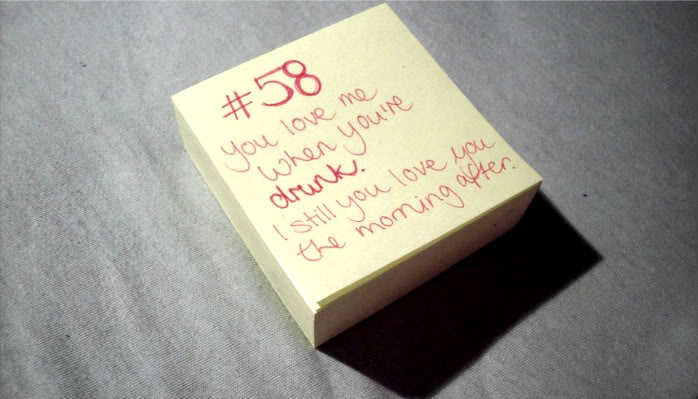 #58
you love me
when you're
drunk.
I still you love you
the morning after.